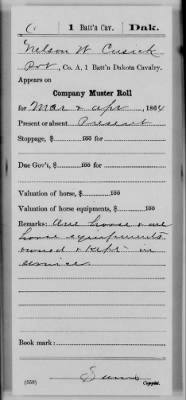 C 1 Batt'n Cav. Dak.
Nelson W Cusick
Pvt, Co. A, 1 Batt'n Dakota Cavalry.
Appears on
Company Muster Roll
for Mar & Apr, 1864
Present or absent Present
Stoppage, $ 100 for
Due Gov't, $ 100 for
Valuation of horse, $ 100
Valuation of horse equipments, $ 100
Remarks: One horse & one
horse equipments
owned & kept in
service
Book mark:
(358) Copyist.